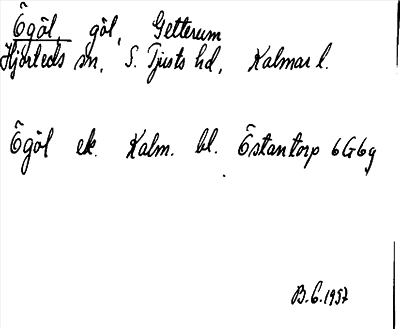 Ögöl, göl, Getterum
Hjorteds sn, S. Tjusts hd, Kalmar l.
Ögöl ek. Kalm. bl. Östantorp 6G6g
B.G.1957